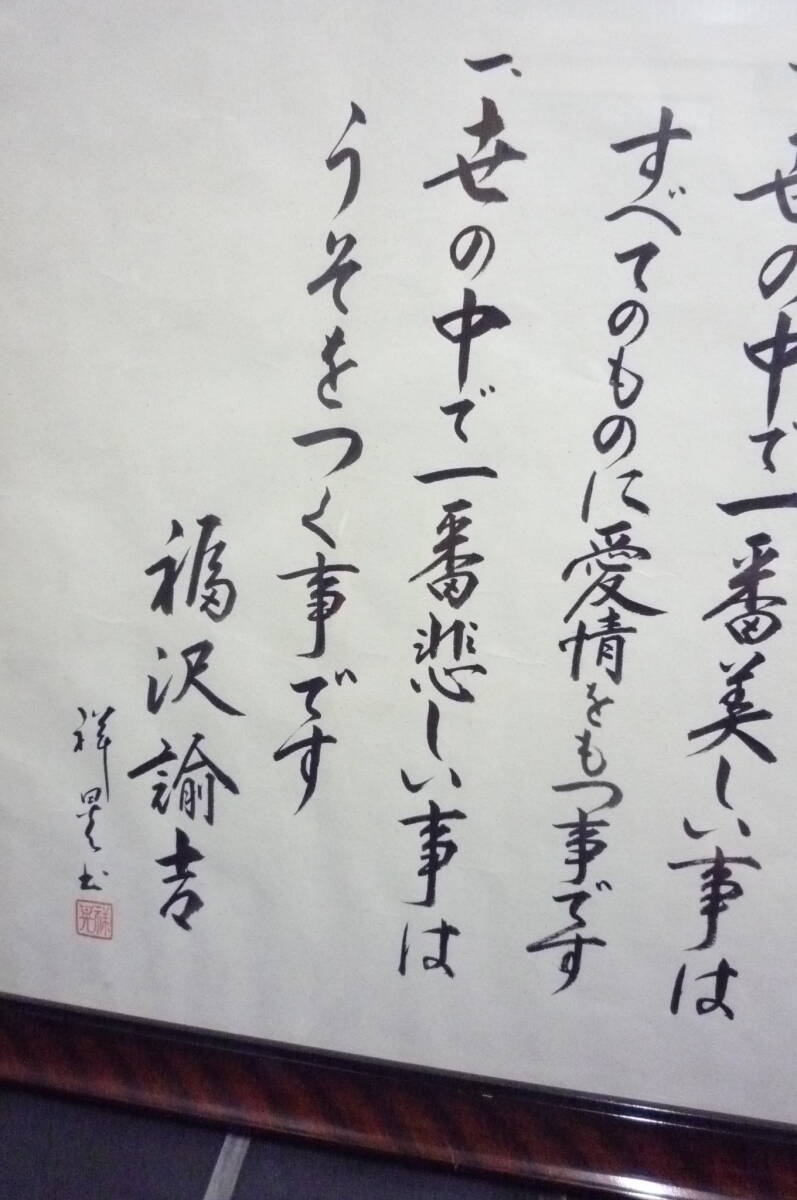 一、世の中で一番美しい事は
すべてのものに愛情をもつ事です
一、世の中で一番悲しい事は
うそをつく事です
福沢諭吉
祥 書